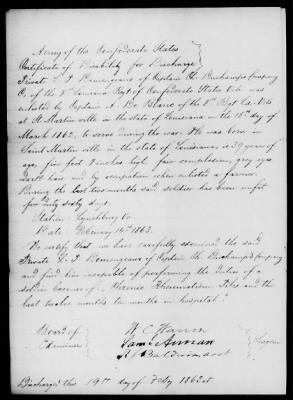 Army of the Confederate States
Certificate of Disability for Discharge
Private L. F. Domengeaux of Captain Ch. Duchamps Company
C, of the 8th Louisiana Regt of Confederate States Vols was
enlisted by Captain A. De Blanc of the 8th Regt La. Vols
at St Martin ville in the state of Louisiana on the 15th day of
March 1862, to serve during the war. He was born in
Saint Martin ville in the state of Louisiana, is 39 years of
age, five feet 8 inches high, fair complexion, grey eyes
dark hair and by occupation when enlisted a farmer.
During the last two months said soldier has been unfit
for duty sixty days.
Station: Lynchburg Va
Date February 14th 1863.
We certify that we have carefully examined the said
Private L. F. Domengeaux of Captain Ch. Duchamps Company
and find him incapable of performing the duties of a
soldier because of Chronic Rheumatism, and the
last twelve months ten months in hospital."
Board of
Examiners
W. C. Warren
Surgeon
Discharged this 19th day of Feby 1863 at